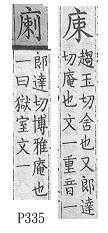 趨玉切舍也又郎達
切庵也文一重音一
郎達切博雅庵也
一曰獄室文一
P335